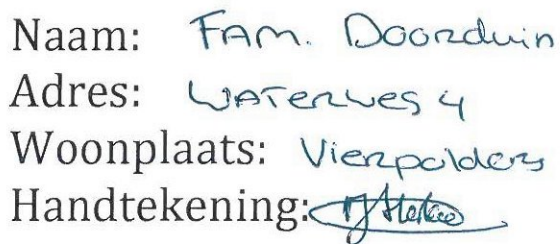 Naam: Fam. Doorduin
Adres: Waterweg 4
Woonplaats: Vierpolders
Handtekening: